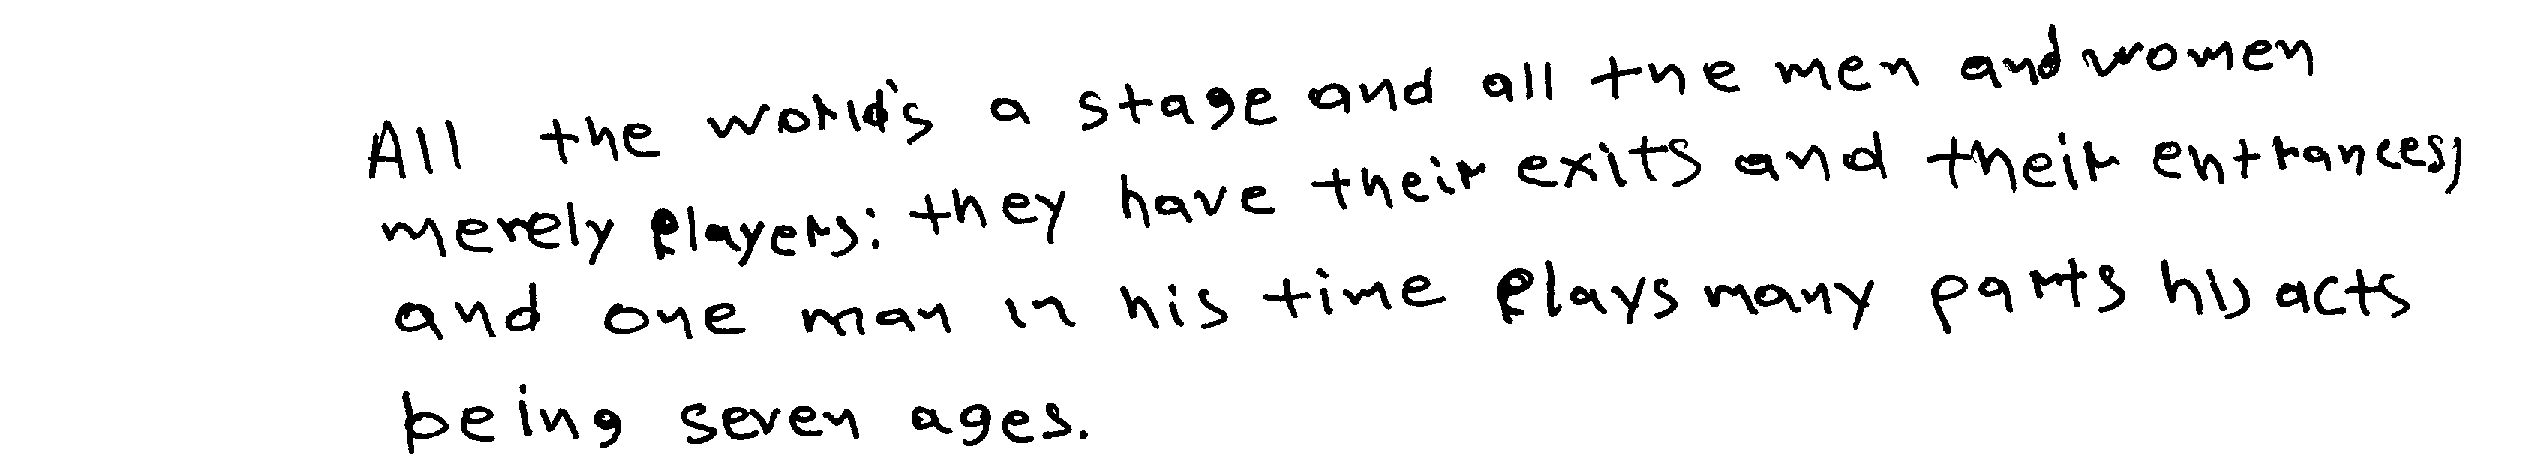 All the world's a stage and all the men and women
merely players: they have their exits and their entrances;
and one man in his time plays many parts his acts
being seven ages.